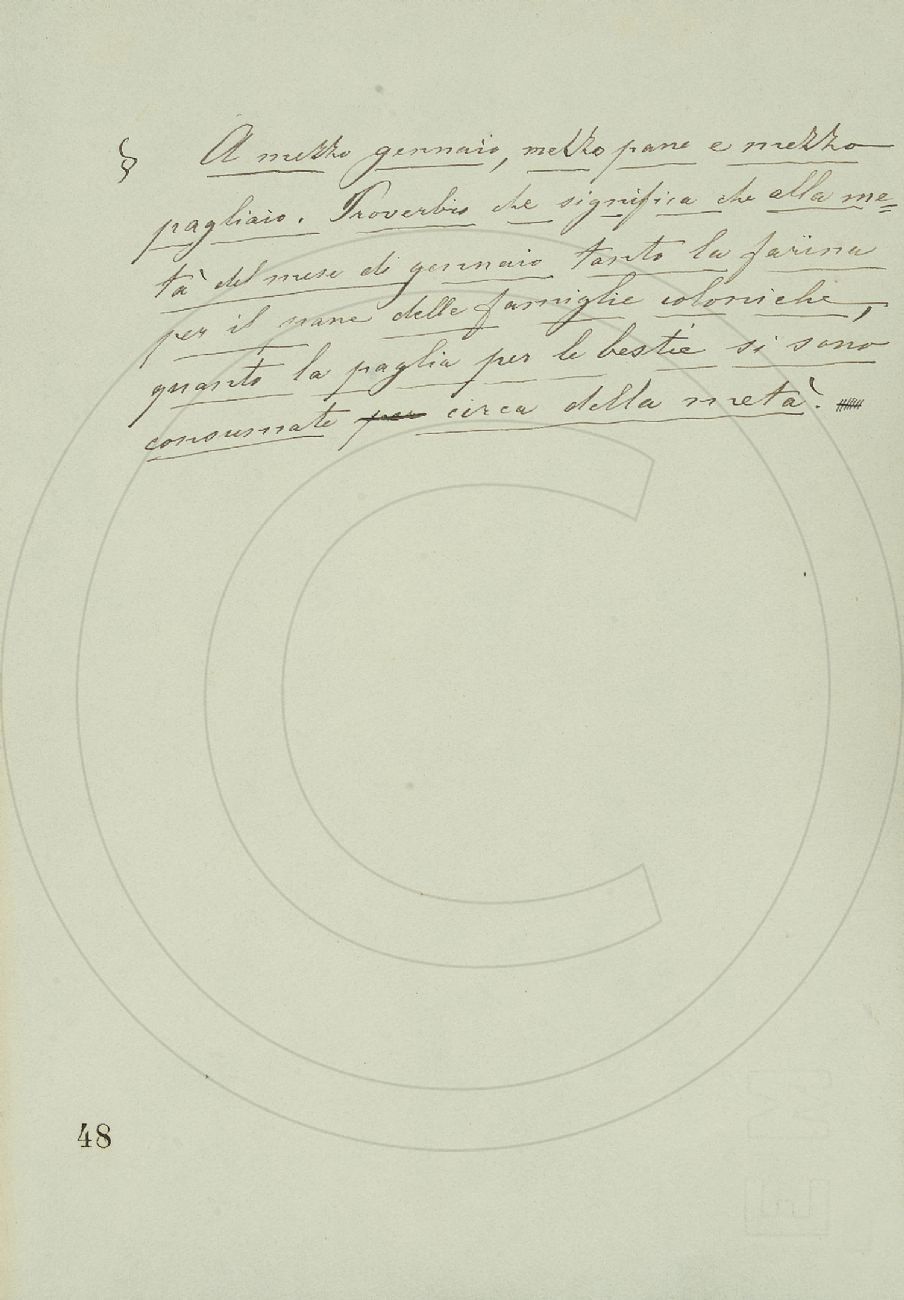 § A mezzo gennaio, mezzo pane e mezzo
pagliaio. Proverbio che significa che alla me=
tà del mese di gennaio tanto la farina
per il pane delle famiglie coloniche,
quanto la paglia per le bestie si sono
consumate per circa della metà.
48